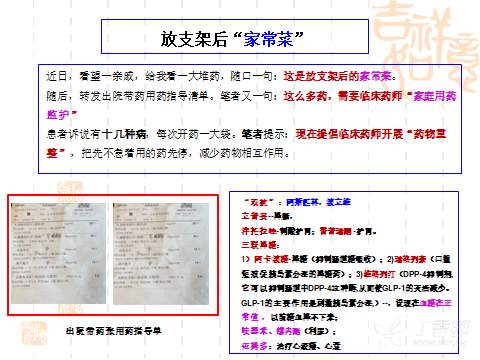 放支架后“家常菜”
近日，看望一亲戚，给我看一大堆药，随口一句：这是放支架后的家常菜。
随后，转发出院带药用药指导清单。笔者又一句：这么多药，需要临床药师“家庭用药
监护”
患者诉说有十几种病，每次开药一大袋。笔者提示：现在提倡临床药师开展“药物重
整”，把先不急着用的药先停，减少药物相互作用。
出院带药张用药指导单
“双抗”：阿斯匹林，波立维
立普妥--降脂，
泮托拉唑-制酸护胃；替普瑞酮-护胃。
三联降糖：
1）阿卡波糖-降糖（抑制肠道糖吸收）；2)瑞格列奈（口服
短效促胰岛素分泌的降糖药）；3)维格列汀（DPP-4抑制剂，
它可以抑制肠道中DPP-4这种酶，从而使GLP-1的灭活减少。
GLP-1的主要作用是刺激胰岛素分泌,）--，说现在血糖在正
常值，以前糖血降不下来；
呋塞米、螺内酯（利尿）；
治疗心绞痛、心衰